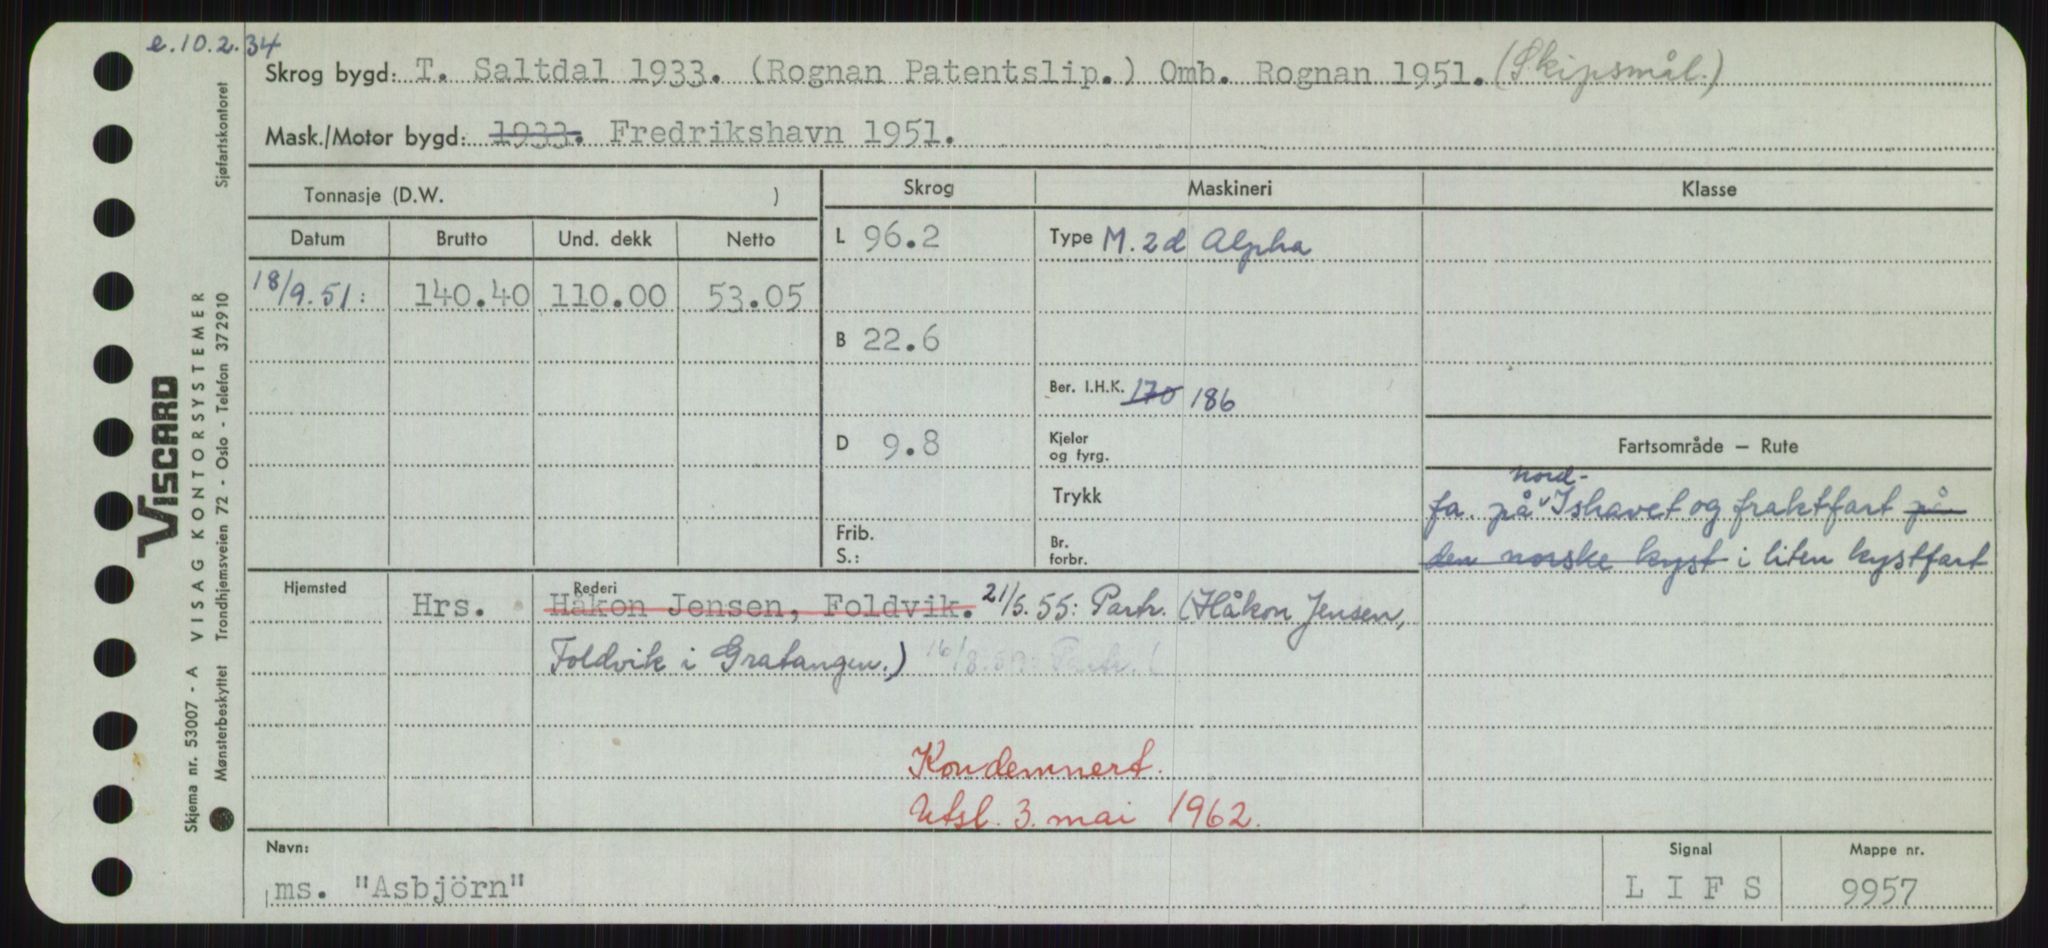 e.10.2.34
Skrog bygd: T. Saltdal 1933. (Rognan Patentslip.) Omb. Rognan 1951. (Skipsmål.)
Mask./Motor bygd: 1933. Fredrikshavn 1951.
Tonnasje (D.W. )
Skrog Maskineri Klasse
Datum Brutto Und. dekk Netto
L 96.2 Type M. 2d Alpha
18/9.51: 140.40 110.00 53.05
B 22.6
Ber. I.H.K. 170 186
D 9.8 Kjeler
og fyrg.
Fartsområde — Rute
Trykk
nord-
fa. på Ishavet og fraktfart på
Frib.
S.:
Br.
forbr.
den norske kyst i liten kystfart
Hjemsted Rederi
Hrs. Håkon Jensen, Foldvik. 21/5.55: Partr. (Håkon Jensen,
Foldvik i Gratangen.) 16/8.59: Partr. (
Kondemnert.
Utsl. 3. mai 1962.
Navn: Signal Mappe nr.
ms. "Asbjörn" L I F S 9957
VISCARD
VISAG KONTORSYSTEMER
Skjema nr. 53007 - A
Sjøfartskontoret
Trondhjemsveien 72 - Oslo - Telefon 372910
Mønsterbeskyttet